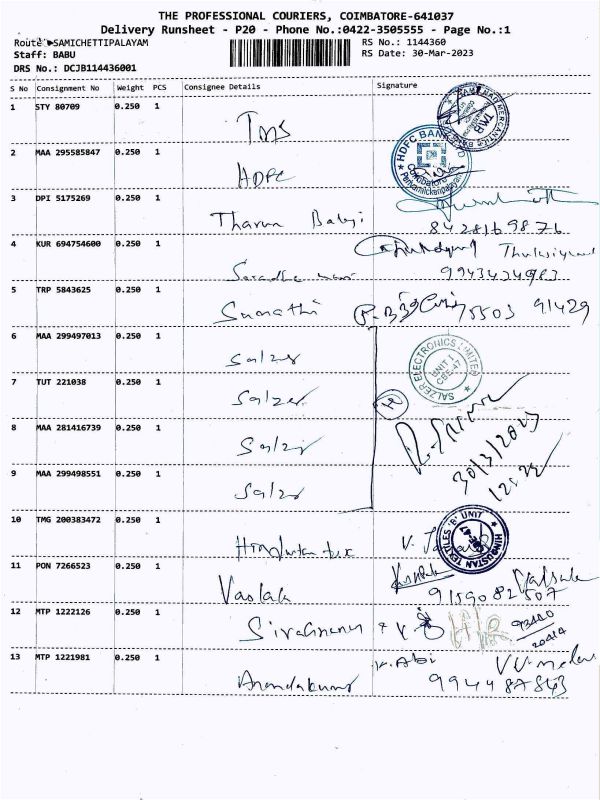 THE PROFESSIONAL COURIERS, COIMBATORE-641037
Delivery Runsheet - P20 - Phone No.:0422-3505555 - Page No.:1
Route: SAMICHETTIPALAYAM
RS No.: 1144360
Staff: BABU
RS Date: 30-Mar-2023
DRS No.: DCJB114436001
S No Consignment No Weight PCS Consignee Details Signature
1 STY 80709 0.250 1
TMB
2 MAA 295585847 0.250 1 HDFC
HDFC BANK LTD
3 DPI 5175269 0.250 1 Tharun Balaji
8428169876
4 KUR 694754600 0.250 1
9943434983
5 TRP 5843625 0.250 1 Sumathi
6 MAA 299497013 0.250 1 Salzer
SALZER ELECTRONICS LIMITED
UNIT 1
CBE-47
7 TUT 221038 0.250 1 Salzer
8 MAA 281416739 0.250 1 Salzer
30/3/2023
9 MAA 299498551 0.250 1 Salzer
10 TMG 200383472 0.250 1 Hindustan tex
HINDUSTAN TEXTILES 'B' UNIT
11 PON 7266523 0.250 1
9159082507
12 MTP 1222126 0.250 1
13 MTP 1221981 0.250 1 Anandakumar
K. Abi